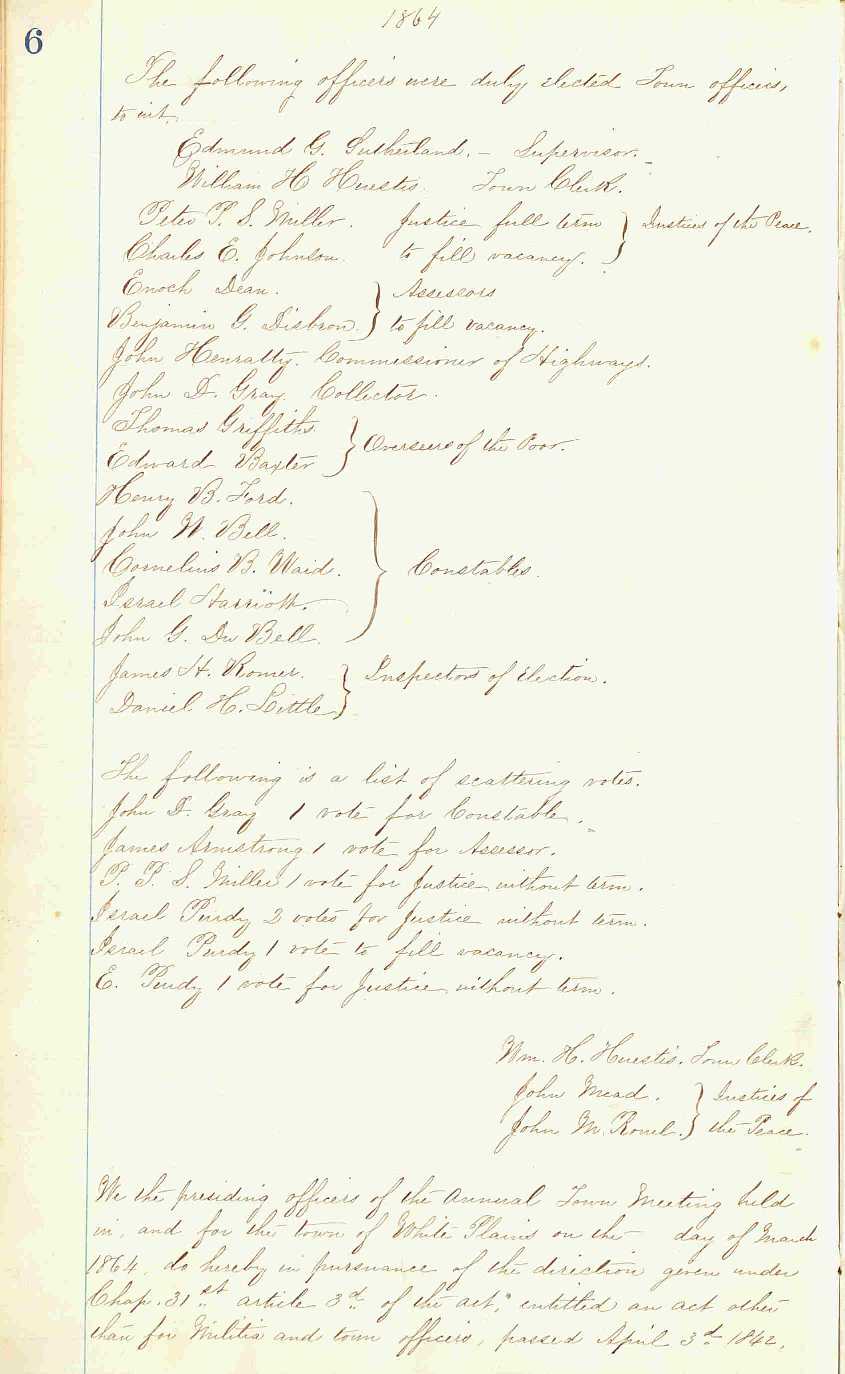 1864
6
The following officers were duly elected Town officers,
to wit.
Edmund G. Sutherland. - Supervisor.
William H Huestis. Town Clerk.
Peter P. S. Miller. Justice full term } Justices of the Peace.
Charles E. Johnson. to fill vacancy.
Enoch Dean. } Assessors
Benjamin G. Disbrow. to fill vacancy.
John Henratty. Commissioner of Highways.
John D. Gray Collector.
Thomas Griffiths } Overseers of the Poor.
Edward Baxter
Henry B. Ford.
John W. Bell.
Cornelius B. Waid. } Constables.
Israel Harriott.
John G. Du Bell.
James H. Romer. } Inspectors of Election.
Daniel H. Little
The following is a list of scattering votes.
John D. Gray 1 vote for Constable.
James Armstrong 1 vote for Assessor.
P. P. S. Miller 1 vote for Justice without term.
Israel Purdy 2 votes for Justice without term.
Israel Purdy 1 vote to fill vacancy.
E. Purdy 1 vote for Justice without term.
Wm. H. Huestis. Town Clerk.
John Mead. } Justices of
John M. the Peace.
We the presiding officers of the Annual Town Meeting held
in, and for the town of White Plains on the day of March
1864, do hereby in pursuance of the direction given under
Chap. 31st article 3d of the act," entitled an act other
than for Militia and town officers, passed April 3d 1842,